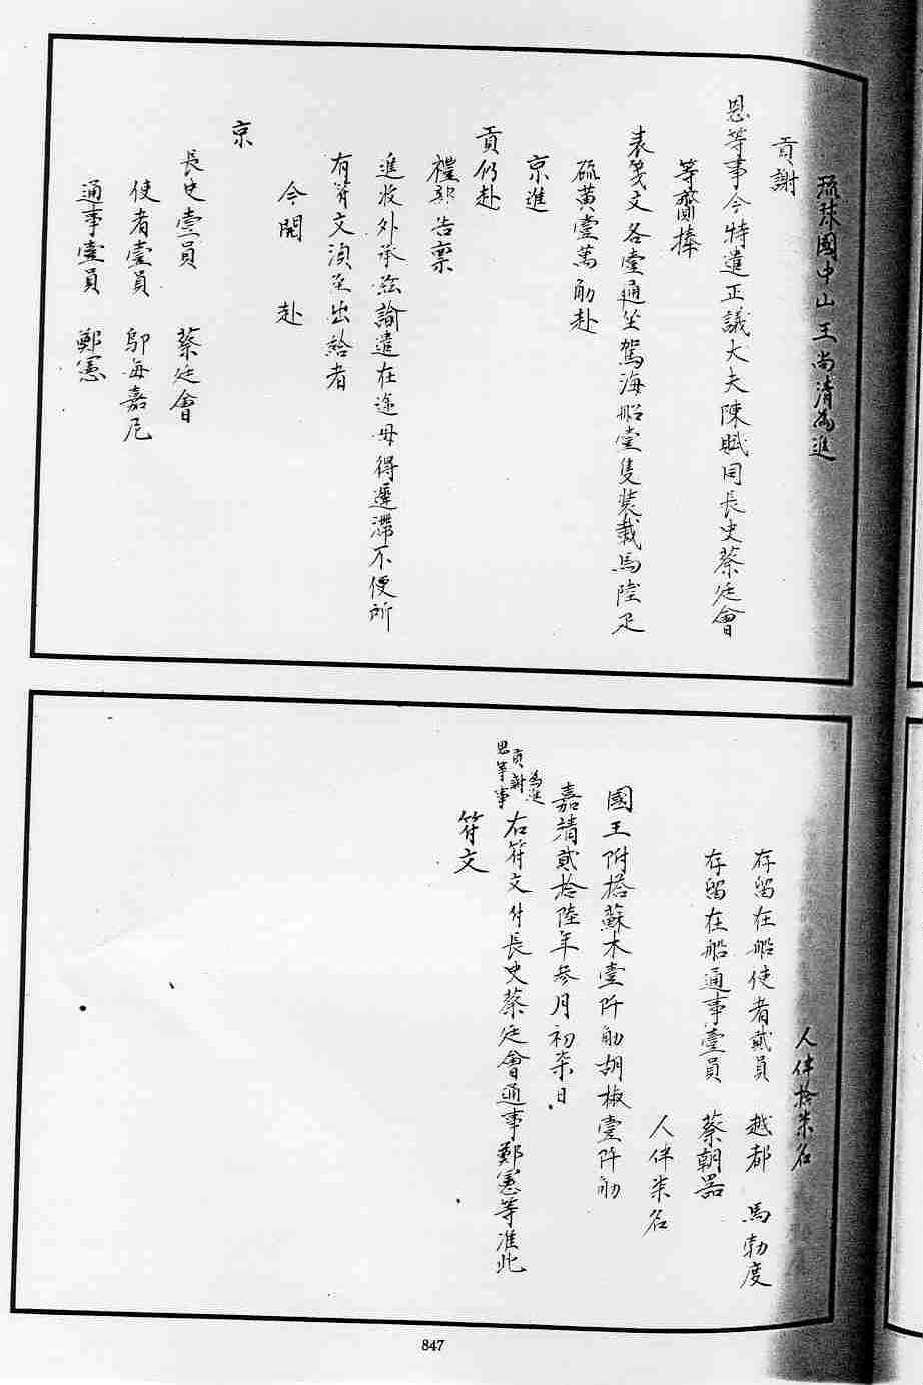 琉球國中山王尚清為進
貢謝
恩等事今特遣正議大夫陳賦同長史蔡廷會
等齎捧
表箋文各壹通坐駕海船壹隻裝載馬陸疋
硫黄壹萬觔赴
京進
貢仍赴
禮部告稟
進收外承給諭遣在途毋得遲滯不便所
有符文湏至出給者
今開赴
京
長史壹員 蔡廷會
使者壹員 毎嘉尼
通事壹員 鄭憲
人伴拾柒名
存留在船使者貳員 越都 馬勃度
存留在船通事壹員 蔡朝器
人伴柒名
國王附搭蘇木壹阡觔胡椒壹阡觔
嘉靖貳拾陸年叁月初柒日
為進
貢謝
恩等事
右符文付長史蔡廷會通事鄭憲等准此
符文
847